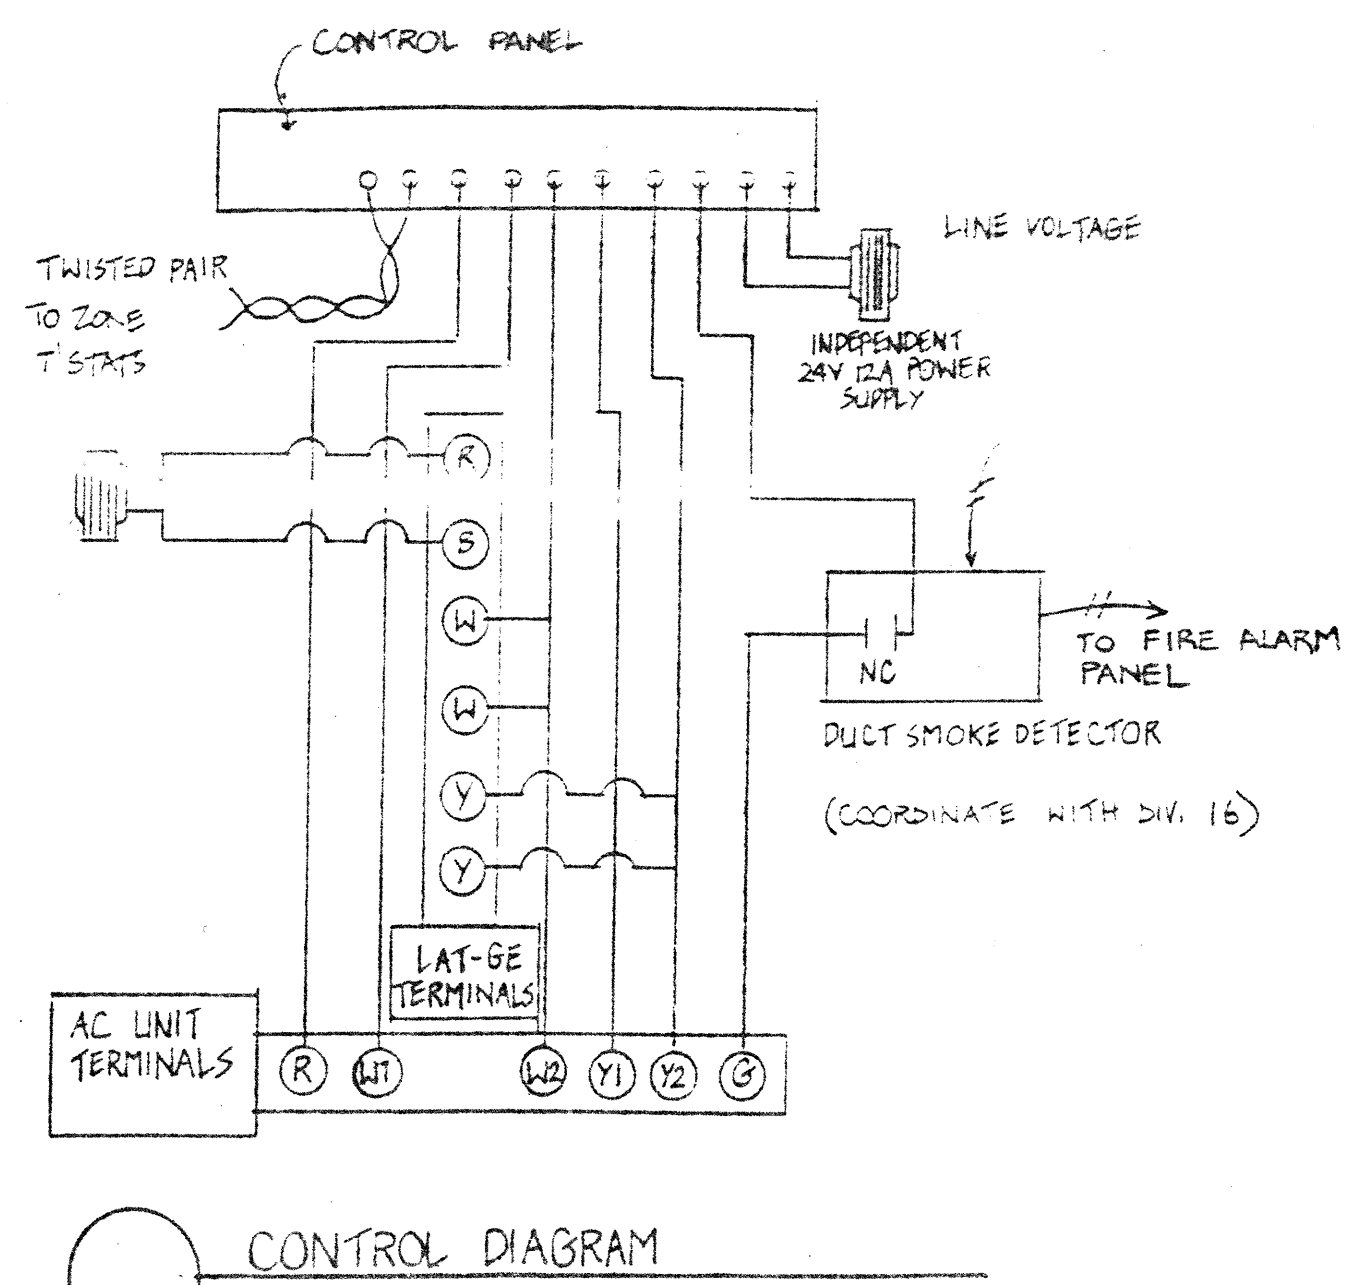 CONTROL PANEL
LINE VOLTAGE
TWISTED PAIR
TO ZONE
T'STATS
INDEPENDENT
24V 12A POWER
SUPPLY
R
S
W
W
Y
Y
NC
TO FIRE ALARM
PANEL
DUCT SMOKE DETECTOR
(COORDINATE WITH DIV. 16)
LAT-GE
TERMINALS
AC UNIT
TERMINALS
R
W1
W2
Y1
Y2
G
CONTROL DIAGRAM